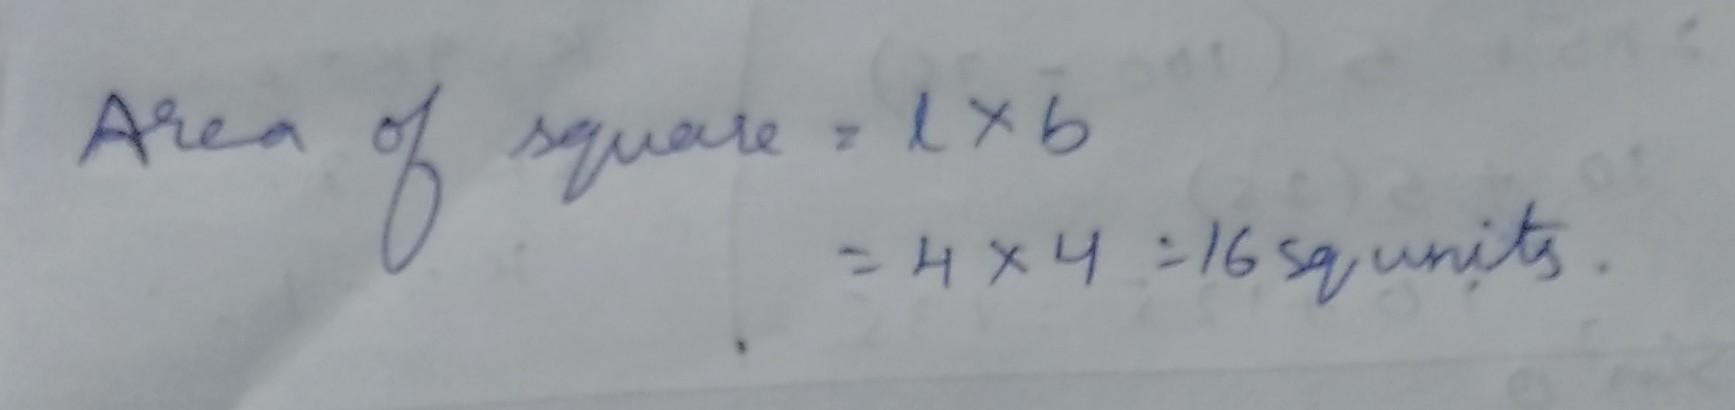 Area of square = l × b
= 4 × 4 = 16 sq units.